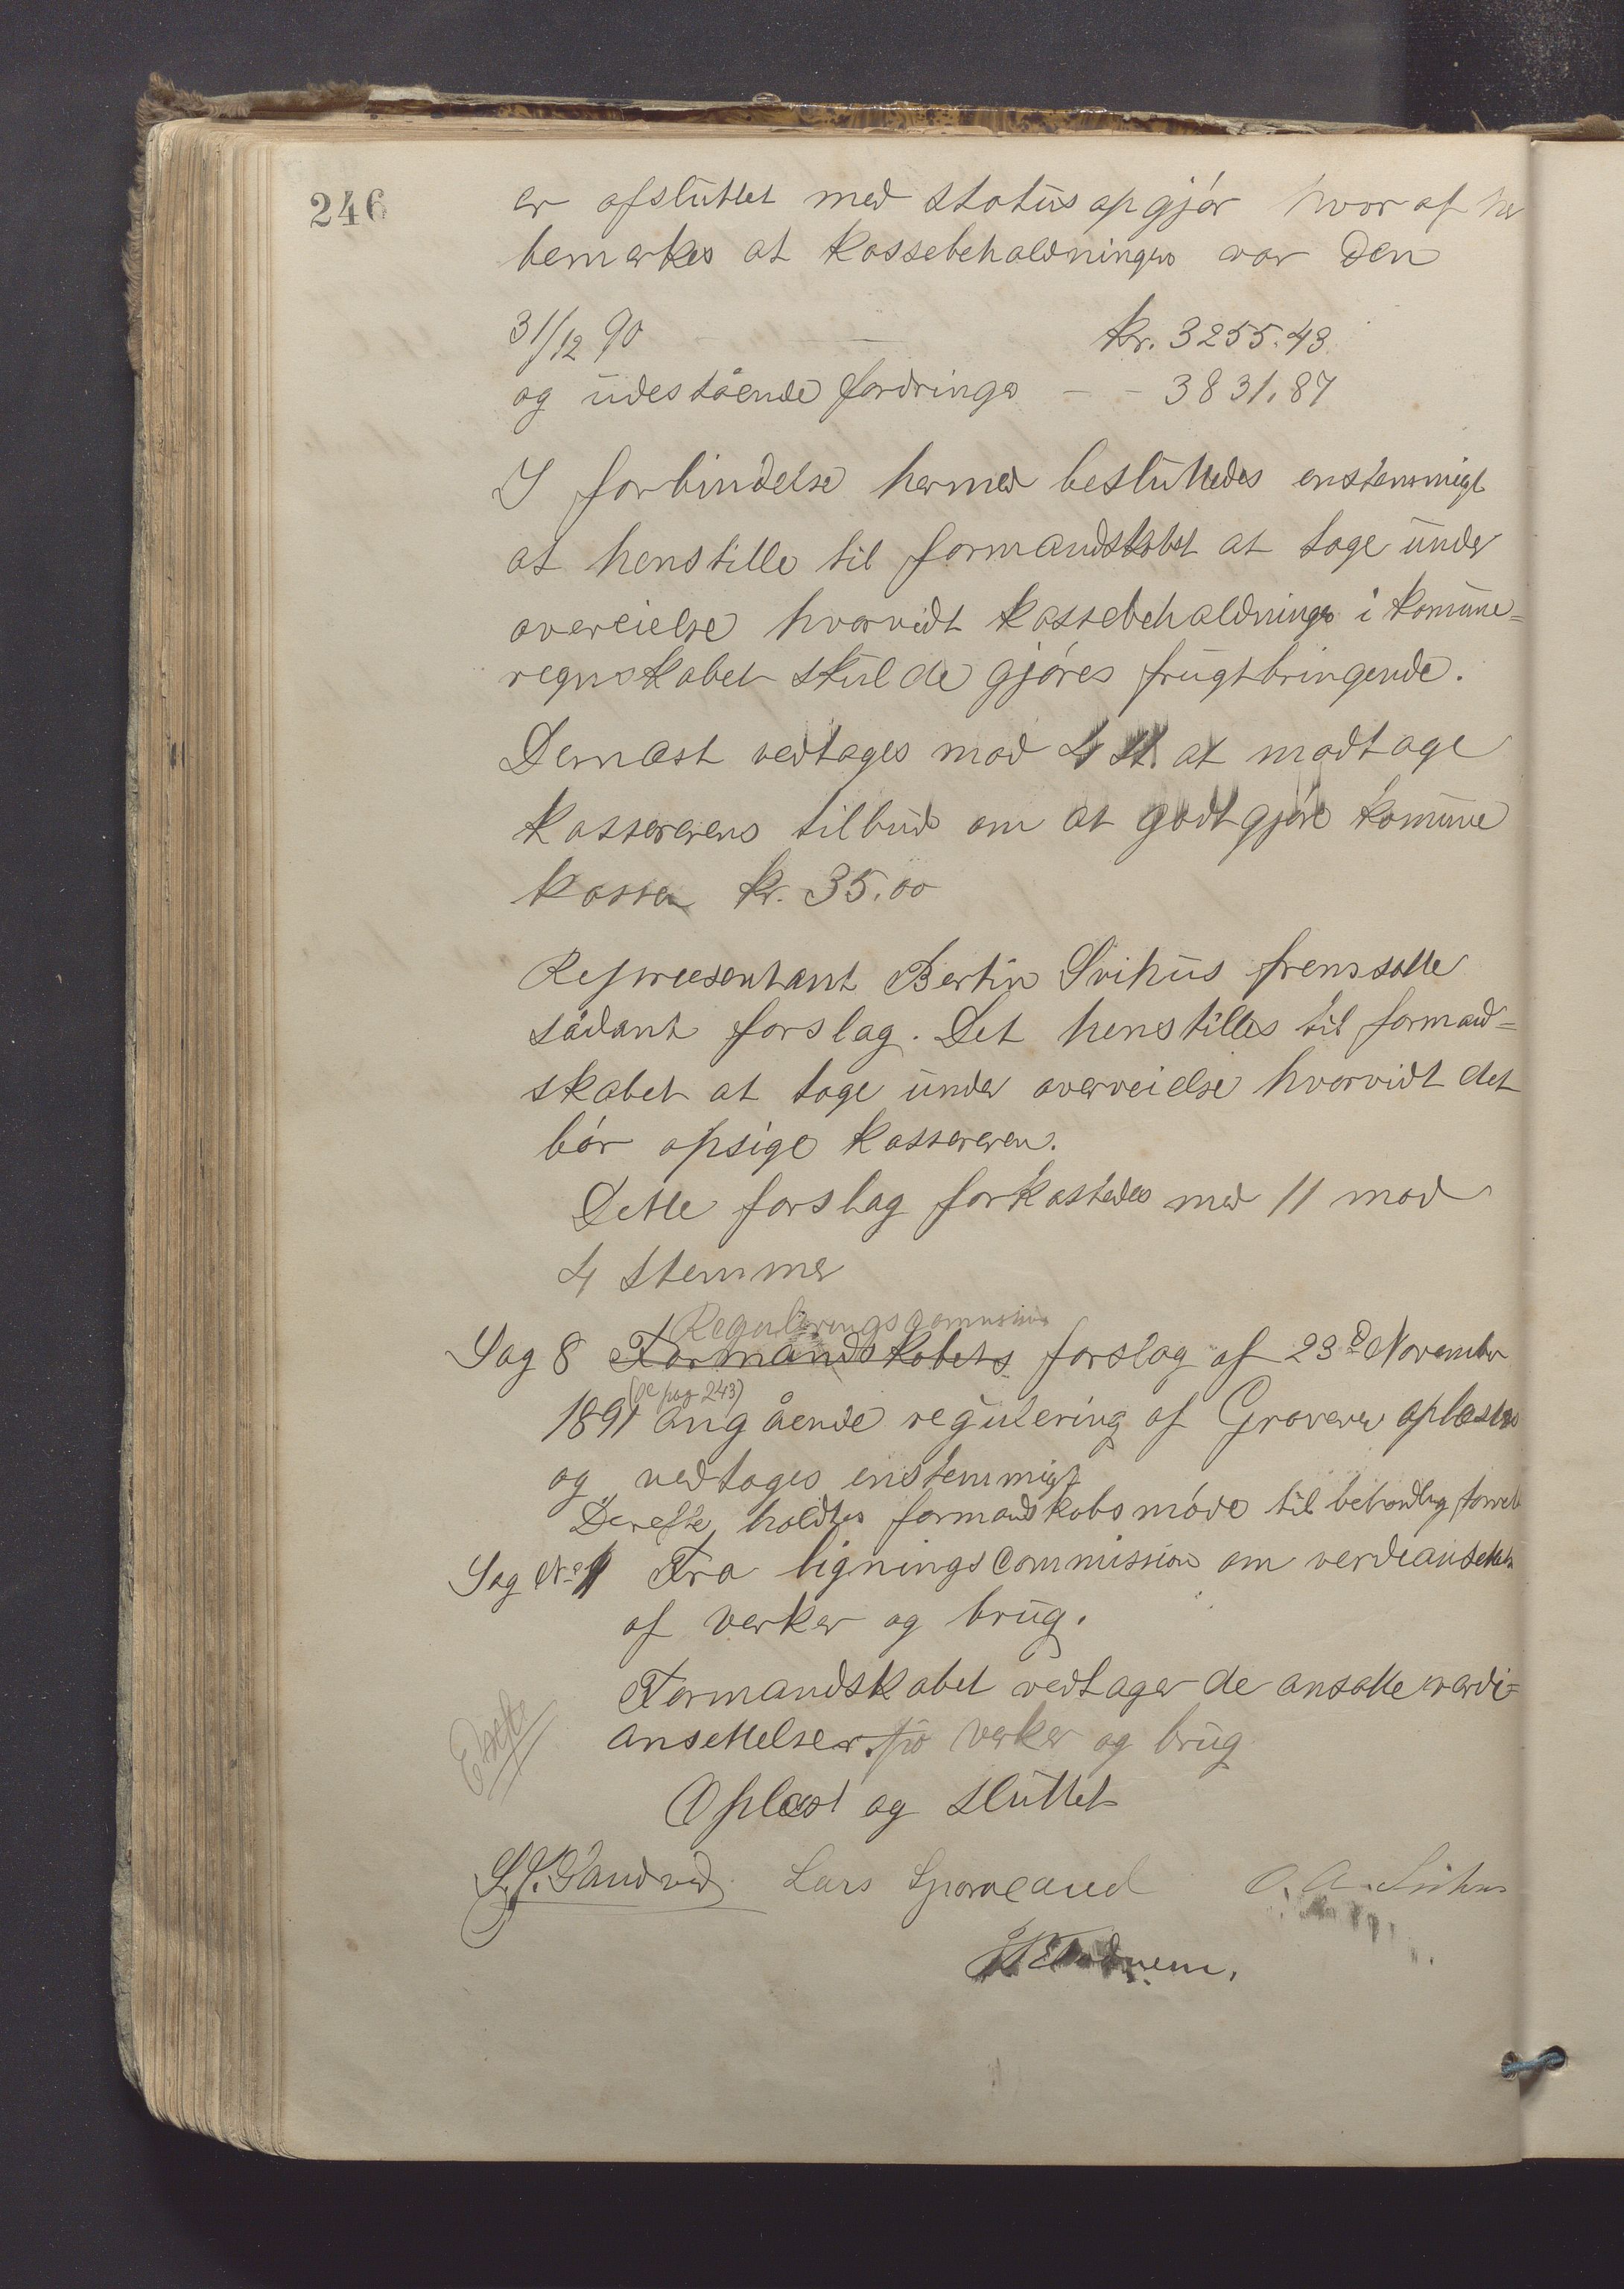 246
er afsluttet med statusopgjør hvoraf her
bemerkes at kassebeholdningen var den
31/12 90 - — kr. 3255.43
og udestående fordringer - - 3831.87
I forbindelse hermed besluttedes enstemmigt
at henstille til formandskabet at tage under
overeielse hvorvidt kassebeholdningen i komune=
regnskabet skulde gjøres frugtbringende.
Dernæst vedtages mod 4 st. at modtage
kassererens tilbud om at godtgjøre komune
kassen kr. 35.00
Repræsentant Bertin Svihus fremsatte
sådant forslag. Det henstilles til formand=
skabet at tage under overveielse hvorvidt det
bør opsige kassereren.
Dette forslag forkastedes med 11 mod
4 stemmer
Reguleringscomission
Sag 8 Formandskabets forslag af 23d November
(se pag 243)
1891 angående regulering af Graverer oplæstes
og vedtoges enstemmigt
Derefter holdtes formandskabsmøde til behandling
Sag No 1 Fra ligningscommission om verdiansettelse
af verker og brug.
Formandskabet vedtager de ansatte værdi=
ansettelser. på verker og brug
Oplæst og sluttet
Lars Sporaland O. A. Svihus